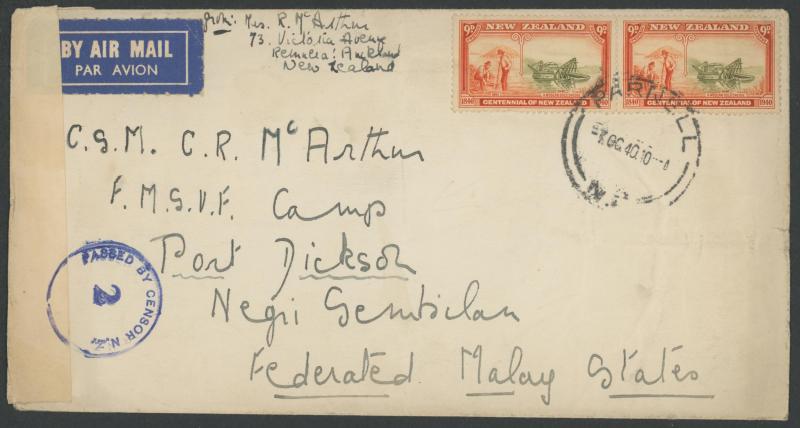 BY AIR MAIL
PAR AVION
from: Mrs. R. McArthur
73. Victoria Avenue
Remuera: Auckland
New Zealand
9D NEW ZEALAND 9D
1840 CENTENNIAL OF NEW ZEALAND 1940
9D NEW ZEALAND 9D
1840 CENTENNIAL OF NEW ZEALAND 1940
PARNELL
N.Z.
C.S.M. C.R. McArthur
F.M.S.V.F. Camp
Port Dickson
Negri Sembilan
Federated Malay States
PASSED BY CENSOR N.Z.
2